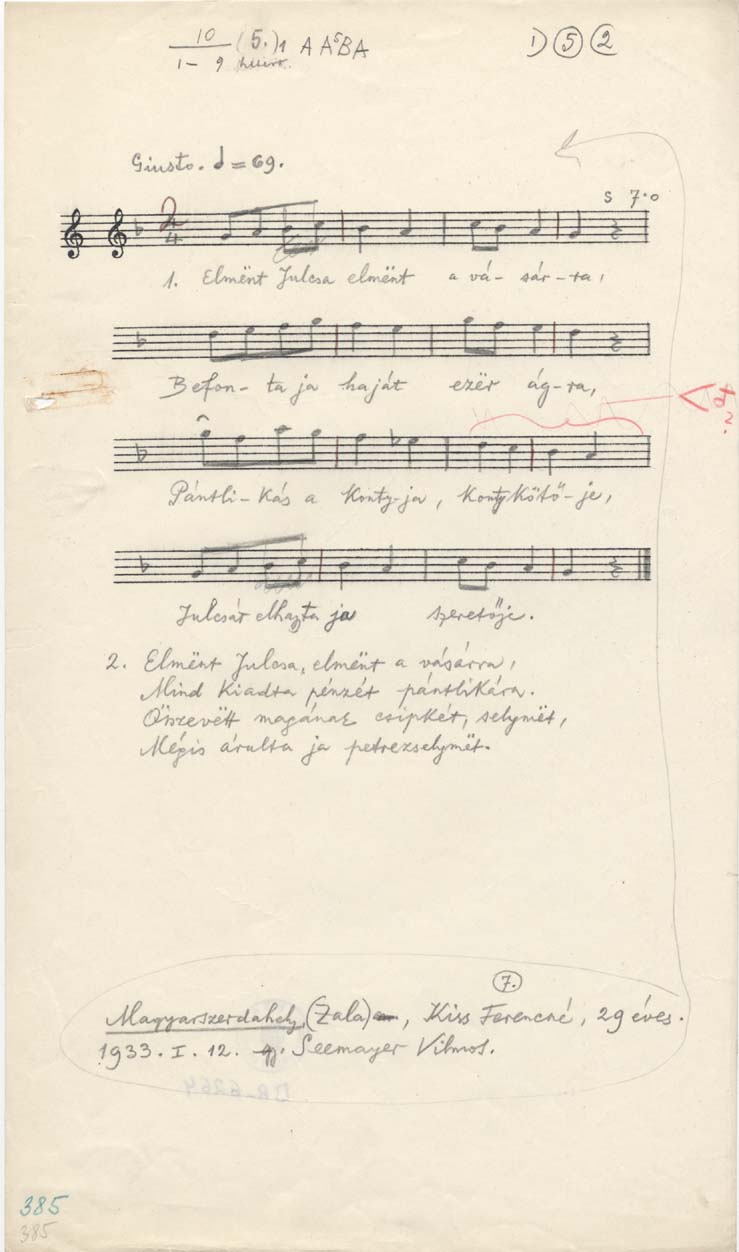 10 (5.)1 A A⁵BA
1 - 9
1) ⑤ ②
Giusto. ♩ = 69.
S 7·0
2
4
1. Elmënt Julcsa elmënt a vá- sár-ra,
Befon- ta ja haját ezër ág-ra,
Pántli-kás a konty-ja, kontykötő-je,
4
2.
Julcsát elhagta ja szeretője.
2. Elmënt Julcsa, elmënt a vásárra,
Mind kiadta pénzét pántlikára.
Összevëtt magának csipkét, selymët,
Mégis árulta ja petrezselymët.
7.
Magyarszerdahely, (Zala), Kiss Ferencné, 29 éves.
1933. I. 12. gy. Seemayer Vilmos.
BR-6264
385
385